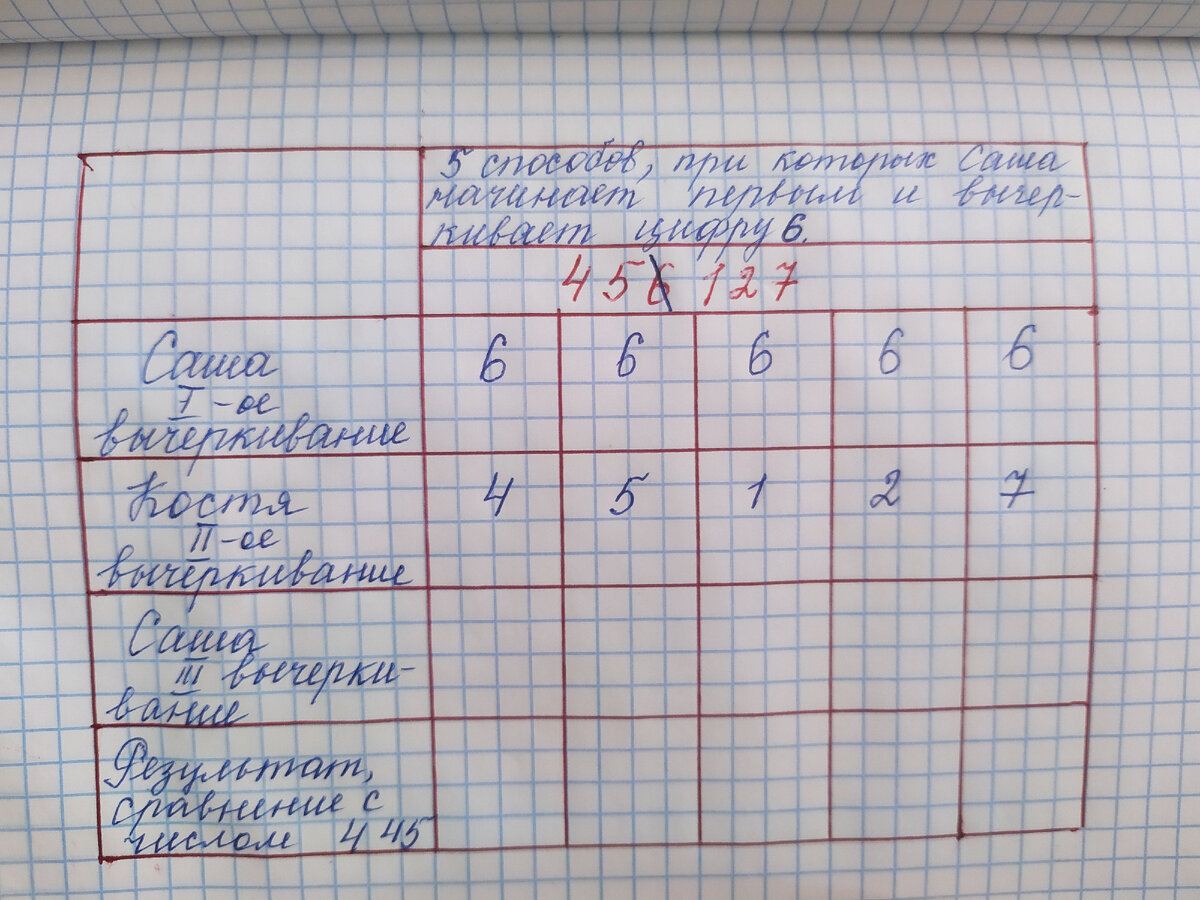 5 способов, при которых Саша
начинает первым и вычер-
кивает цифру 6.
4 5 6 1 2 7
Саша
I-ое
вычеркивание
6 6 6 6 6
Костя
II-ое
вычеркивание
4 5 1 2 7
Саша
III вычерки-
вание
Результат,
сравнение с
числом 445